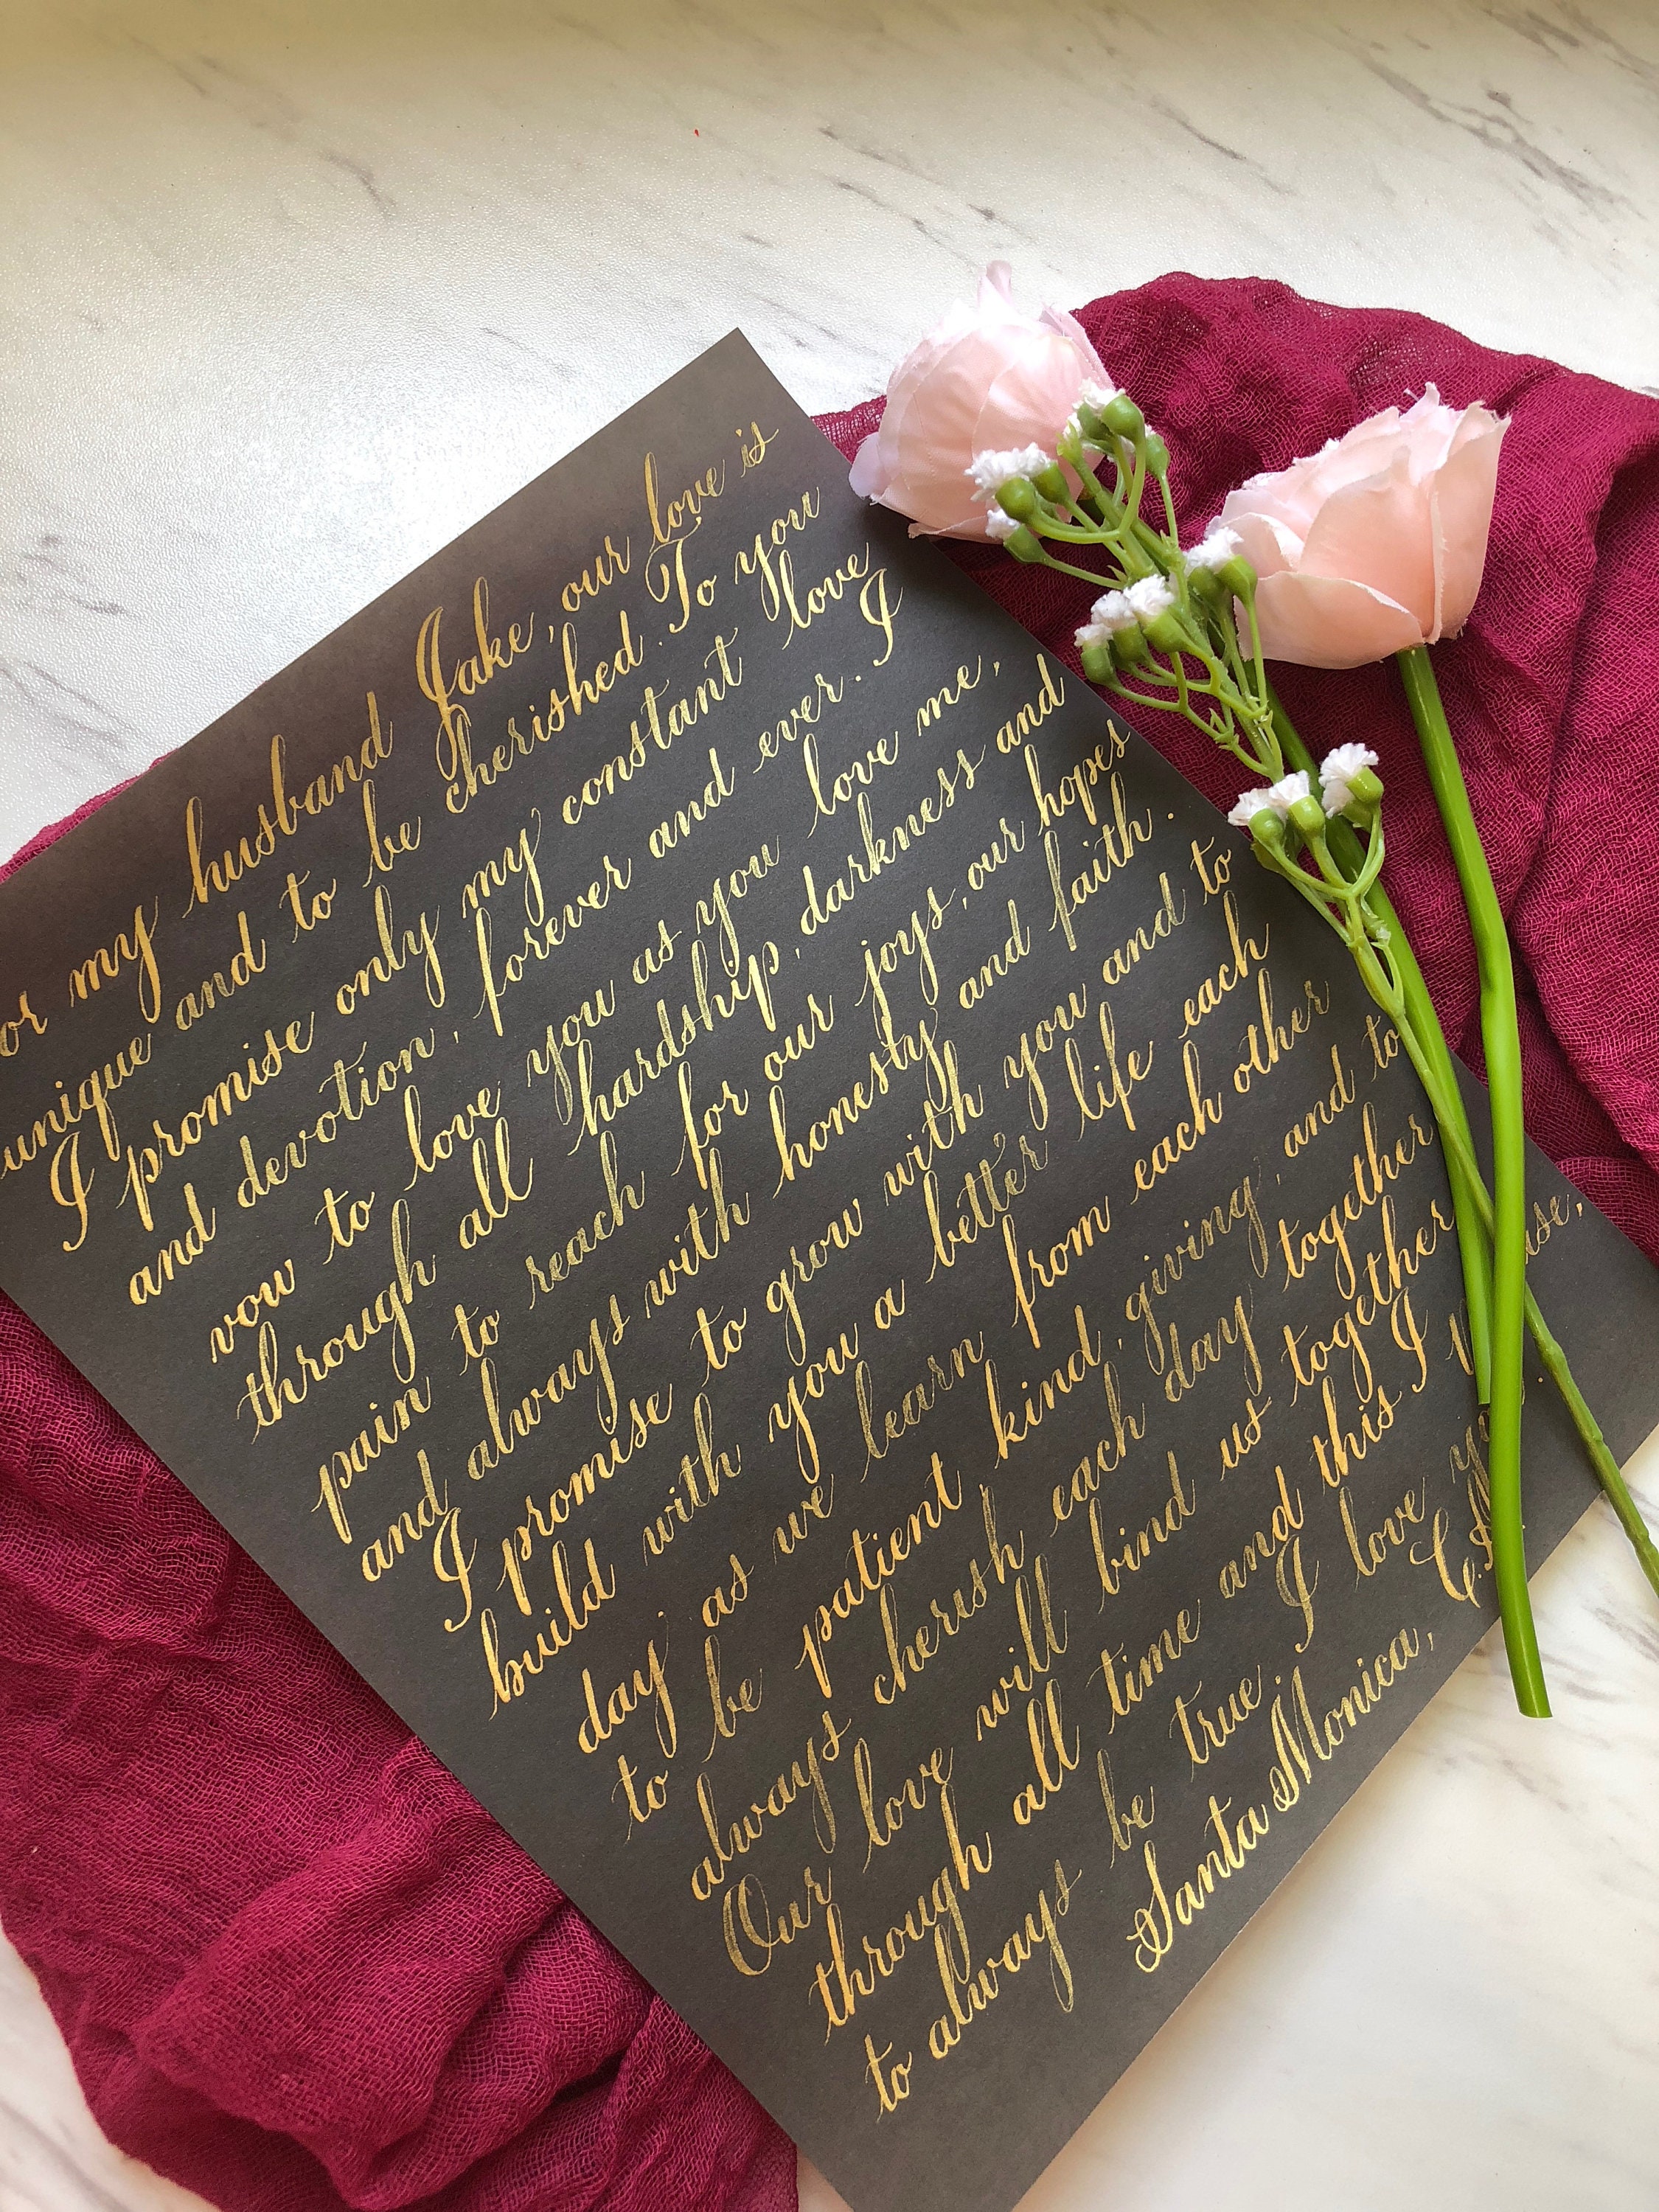 or my husband Jake, our love is
unique and to be cherished. To you
I promise only my constant love
and devotion, forever and ever. I
vow to love you as you love me,
through all hardship, darkness and
pain to reach for our joys, our hopes
and always with honesty and faith.
I promise to grow with you and to
build with you a better life each
day, as we learn from each other
to be patient kind, giving, and to
always cherish each day together
Our love will bind us together
through all time and this I
to always be true. I love
Santa Monica,